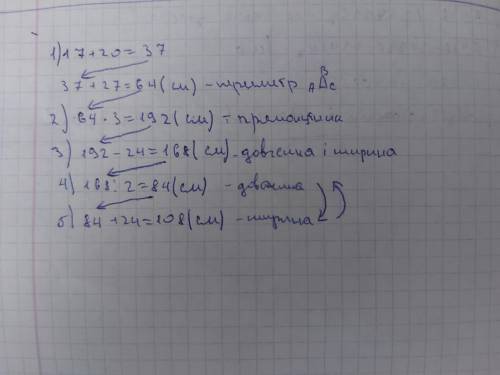 1) 17+20=37
37+27=64(см) - периметр ABC
2) 64·3=192(см) - прямоцтика
3) 192-24=168(см) - довжина і ширина
4) 168:2=84(см) - довжина
5) 84+24=108(см) - ширина